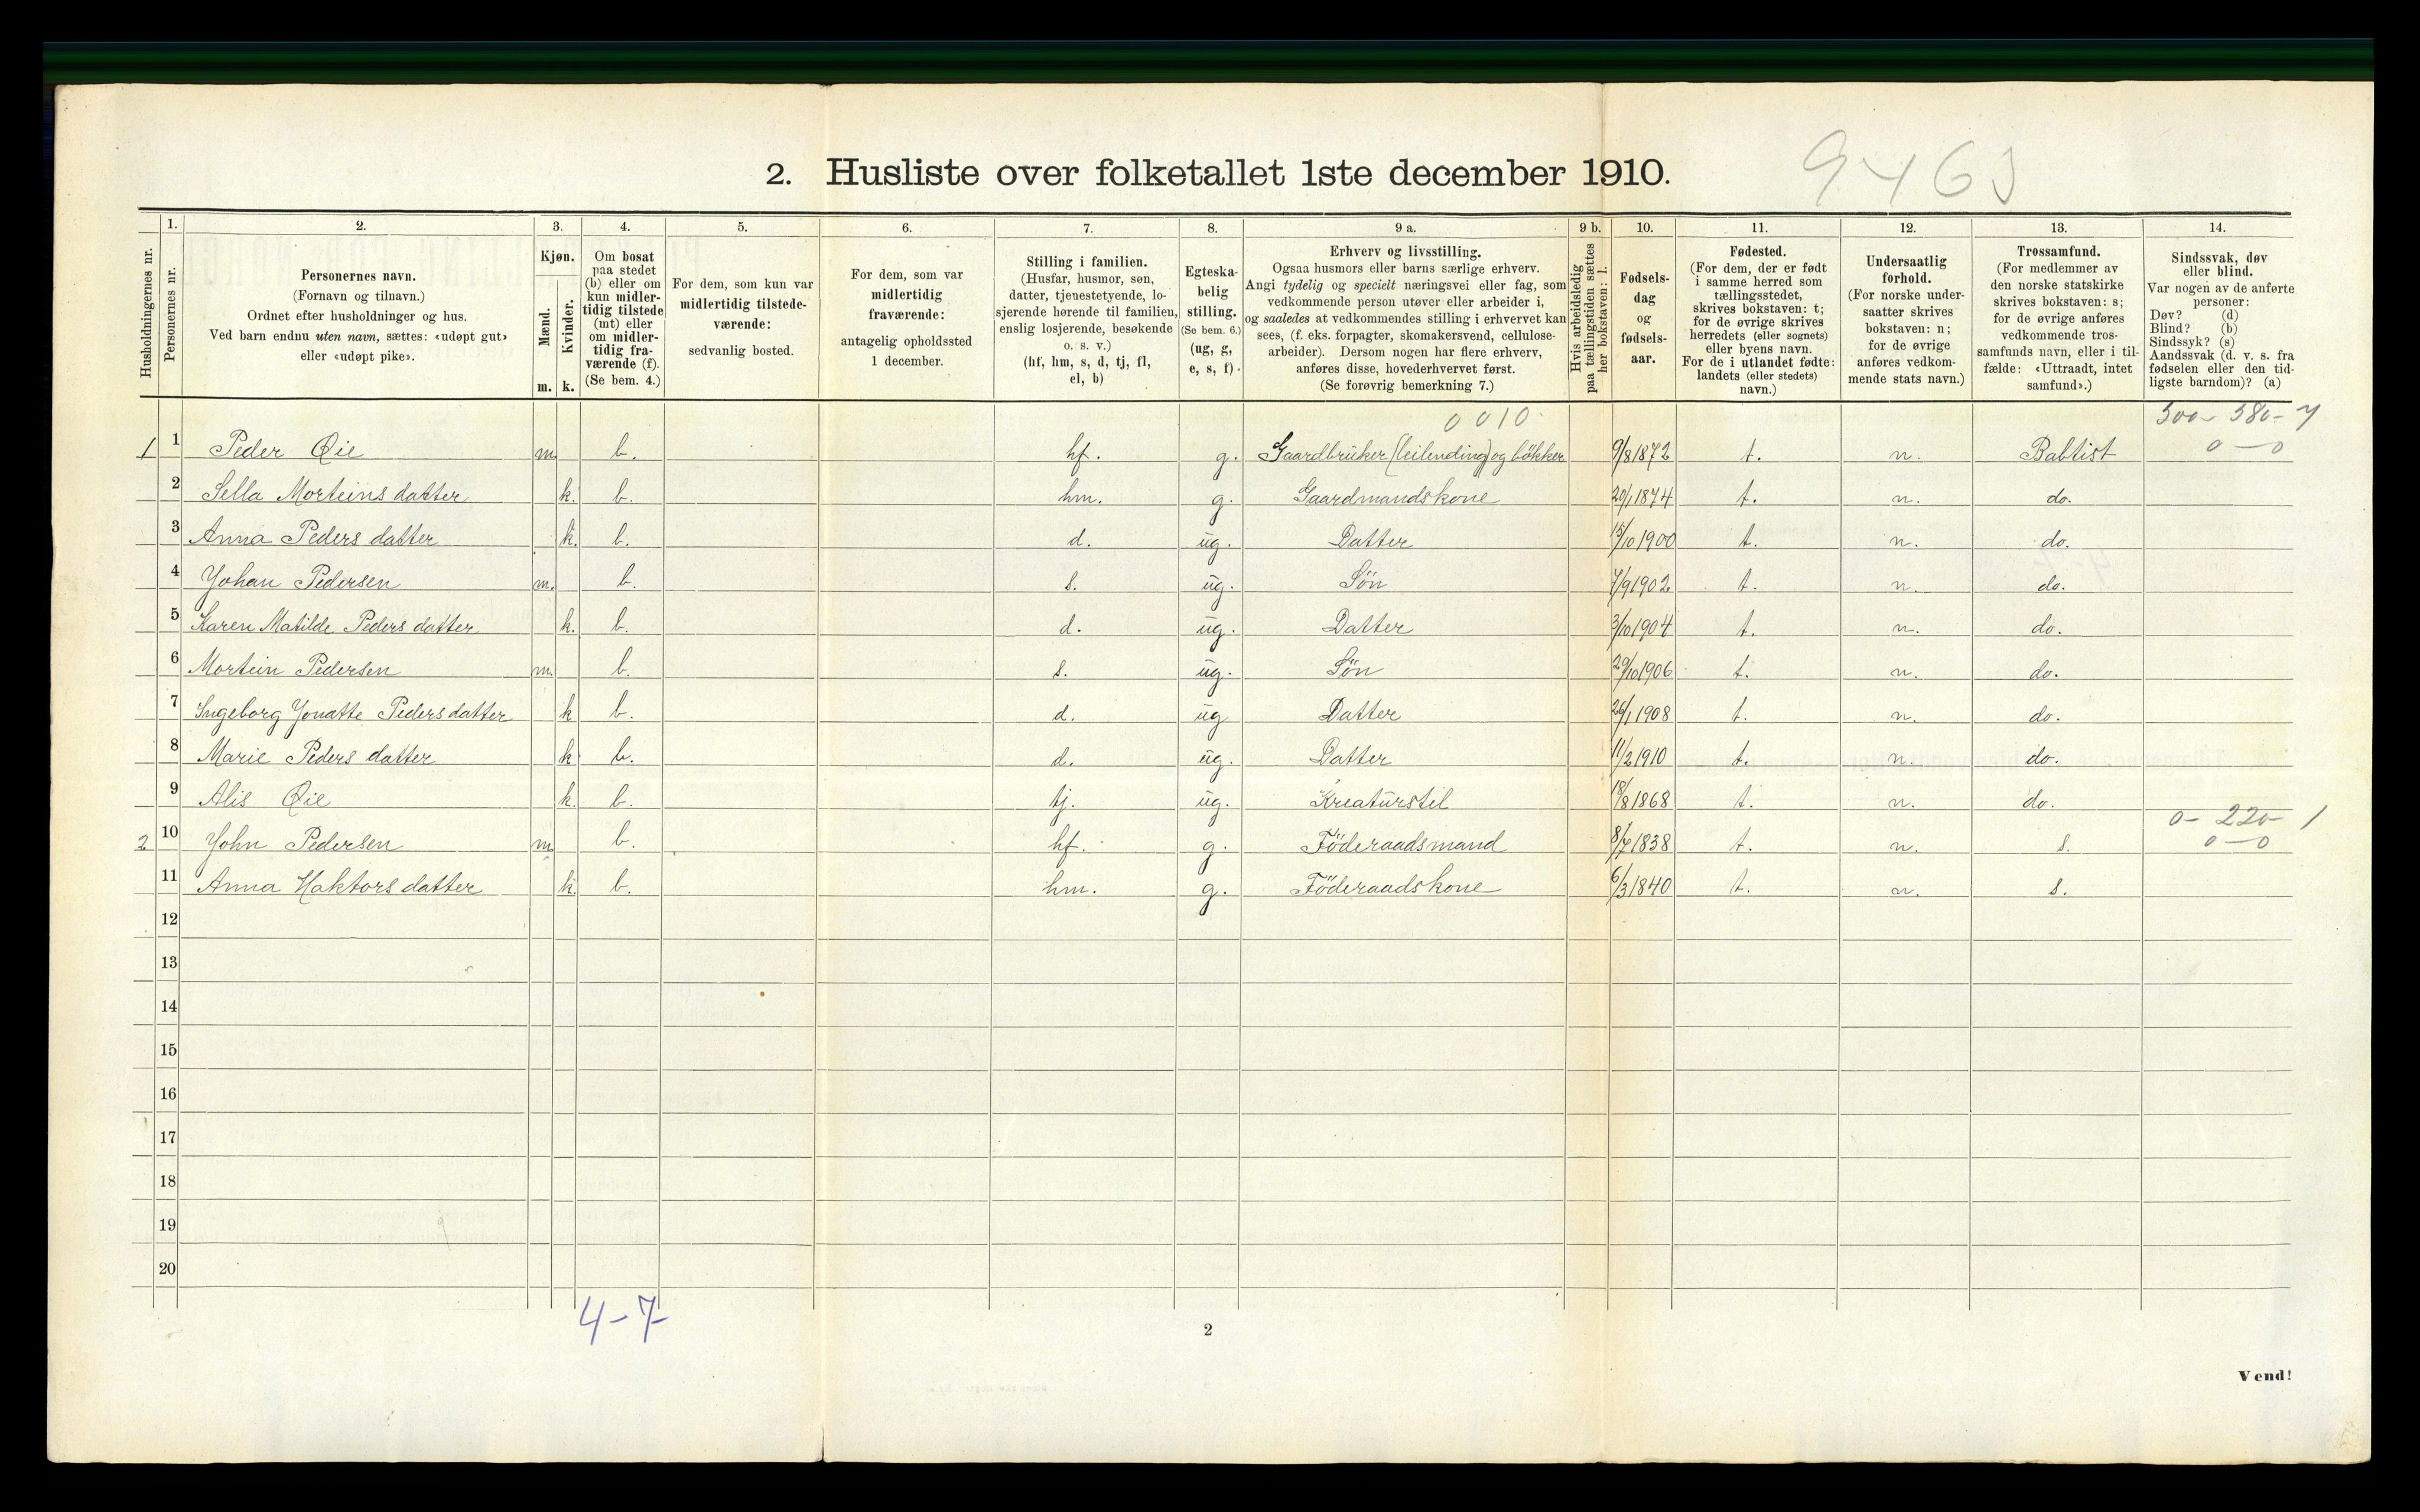 9463
2. Husliste over folketallet 1ste december 1910.
Husholdningernes nr.
1. Personernes nr.
2. Personernes navn. (Fornavn og tilnavn.) Ordnet efter husholdninger og hus. Ved barn endnu uten navn, sættes: «udøpt gut» eller «udøpt pike».
3. Kjøn. Mænd. m. Kvinder. k.
4. Om bosat paa stedet (b) eller om kun midlertidig tilstede (mt) eller om midlertidig fraværende (f). (Se bem. 4.)
5. For dem, som kun var midlertidig tilstedeværende: sedvanlig bosted.
6. For dem, som var midlertidig fraværende: antagelig opholdssted 1 december.
7. Stilling i familien. (Husfar, husmor, søn, datter, tjenestetyende, losjerende hørende til familien, enslig losjerende, besøkende o. s. v.) (hf, hm, s, d, tj, fl, el, b)
8. Egteskabelig stilling. (Se bem. 6.) (ug, g, e, s, f)
9 a. Erhverv og livsstilling. Ogsaa husmors eller barns særlige erhverv. Angi tydelig og specielt næringsvei eller fag, som vedkommende person utøver eller arbeider i, og saaledes at vedkommendes stilling i erhvervet kan sees, (f. eks. forpagter, skomakersvend, cellulosearbeider). Dersom nogen har flere erhverv, anføres disse, hovederhvervet først. (Se forøvrig bemerkning 7.)
9 b. Hvis arbeidsledig paa tællingstiden sættes her bokstaven: l.
10. Fødselsdag og fødselsaar.
11. Fødested. (For dem, der er født i samme herred som tællingsstedet, skrives bokstaven: t; for de øvrige skrives herredets (eller sognets) eller byens navn. For de i utlandet fødte: landets (eller stedets) navn.)
12. Undersaatlig forhold. (For norske undersaatter skrives bokstaven: n; for de øvrige anføres vedkommende stats navn.)
13. Trossamfund. (For medlemmer av den norske statskirke skrives bokstaven: s; for de øvrige anføres vedkommende trossamfunds navn, eller i tilfælde: «Uttraadt, intet samfund».)
14. Sindssvak, døv eller blind. Var nogen av de anførte personer: Døv? (d) Blind? (b) Sindssyk? (s) Aandssvak (d. v. s. fra fødselen eller den tidligste barndom)? (a)
0010 500- 580- 7
1 1 Peder Øie m b. hf. g. Gaardbruker (leilending) og bökker 9/8 1872 t. n. Babtist 0-0
2 Sella Morteins datter k. b. hm. g. Gaardmandskone 20/1 1874 t. n. do.
3 Anna Peders datter k. b. d. ug. Datter 15/10 1900 t. n. do.
4 Yohan Pedersen m. b. s. ug. Sön 7/9 1902 t. n. do.
5 Karen Matilde Peders datter k. b. d. ug. Datter 3/10 1904 t. n. do.
6 Mortein Pedersen m. b. s. ug. Sön 29/10 1906 t. n. do.
7 Ingeborg Yonatte Peders datter k b. d. ug Datter 26/1 1908 t. n. do.
8 Marie Peders datter k b. d. ug. Datter 11/2 1910 t. n. do.
9 Alis Øie k. b. tj. ug. Kreaturstel 18/8 1868 t. n. do.
0- 220- 1
2 10 Yohn Pedersen m b. hf. g. Föderaadsmand 8/7 1838 t. n. s. 0-0
11 Anna Haktors datter k. b. hm. g. Föderaadskone 6/3 1840 t. n. s.
12
13
14
15
16
17
18
19
20
4-7
2
Vend!